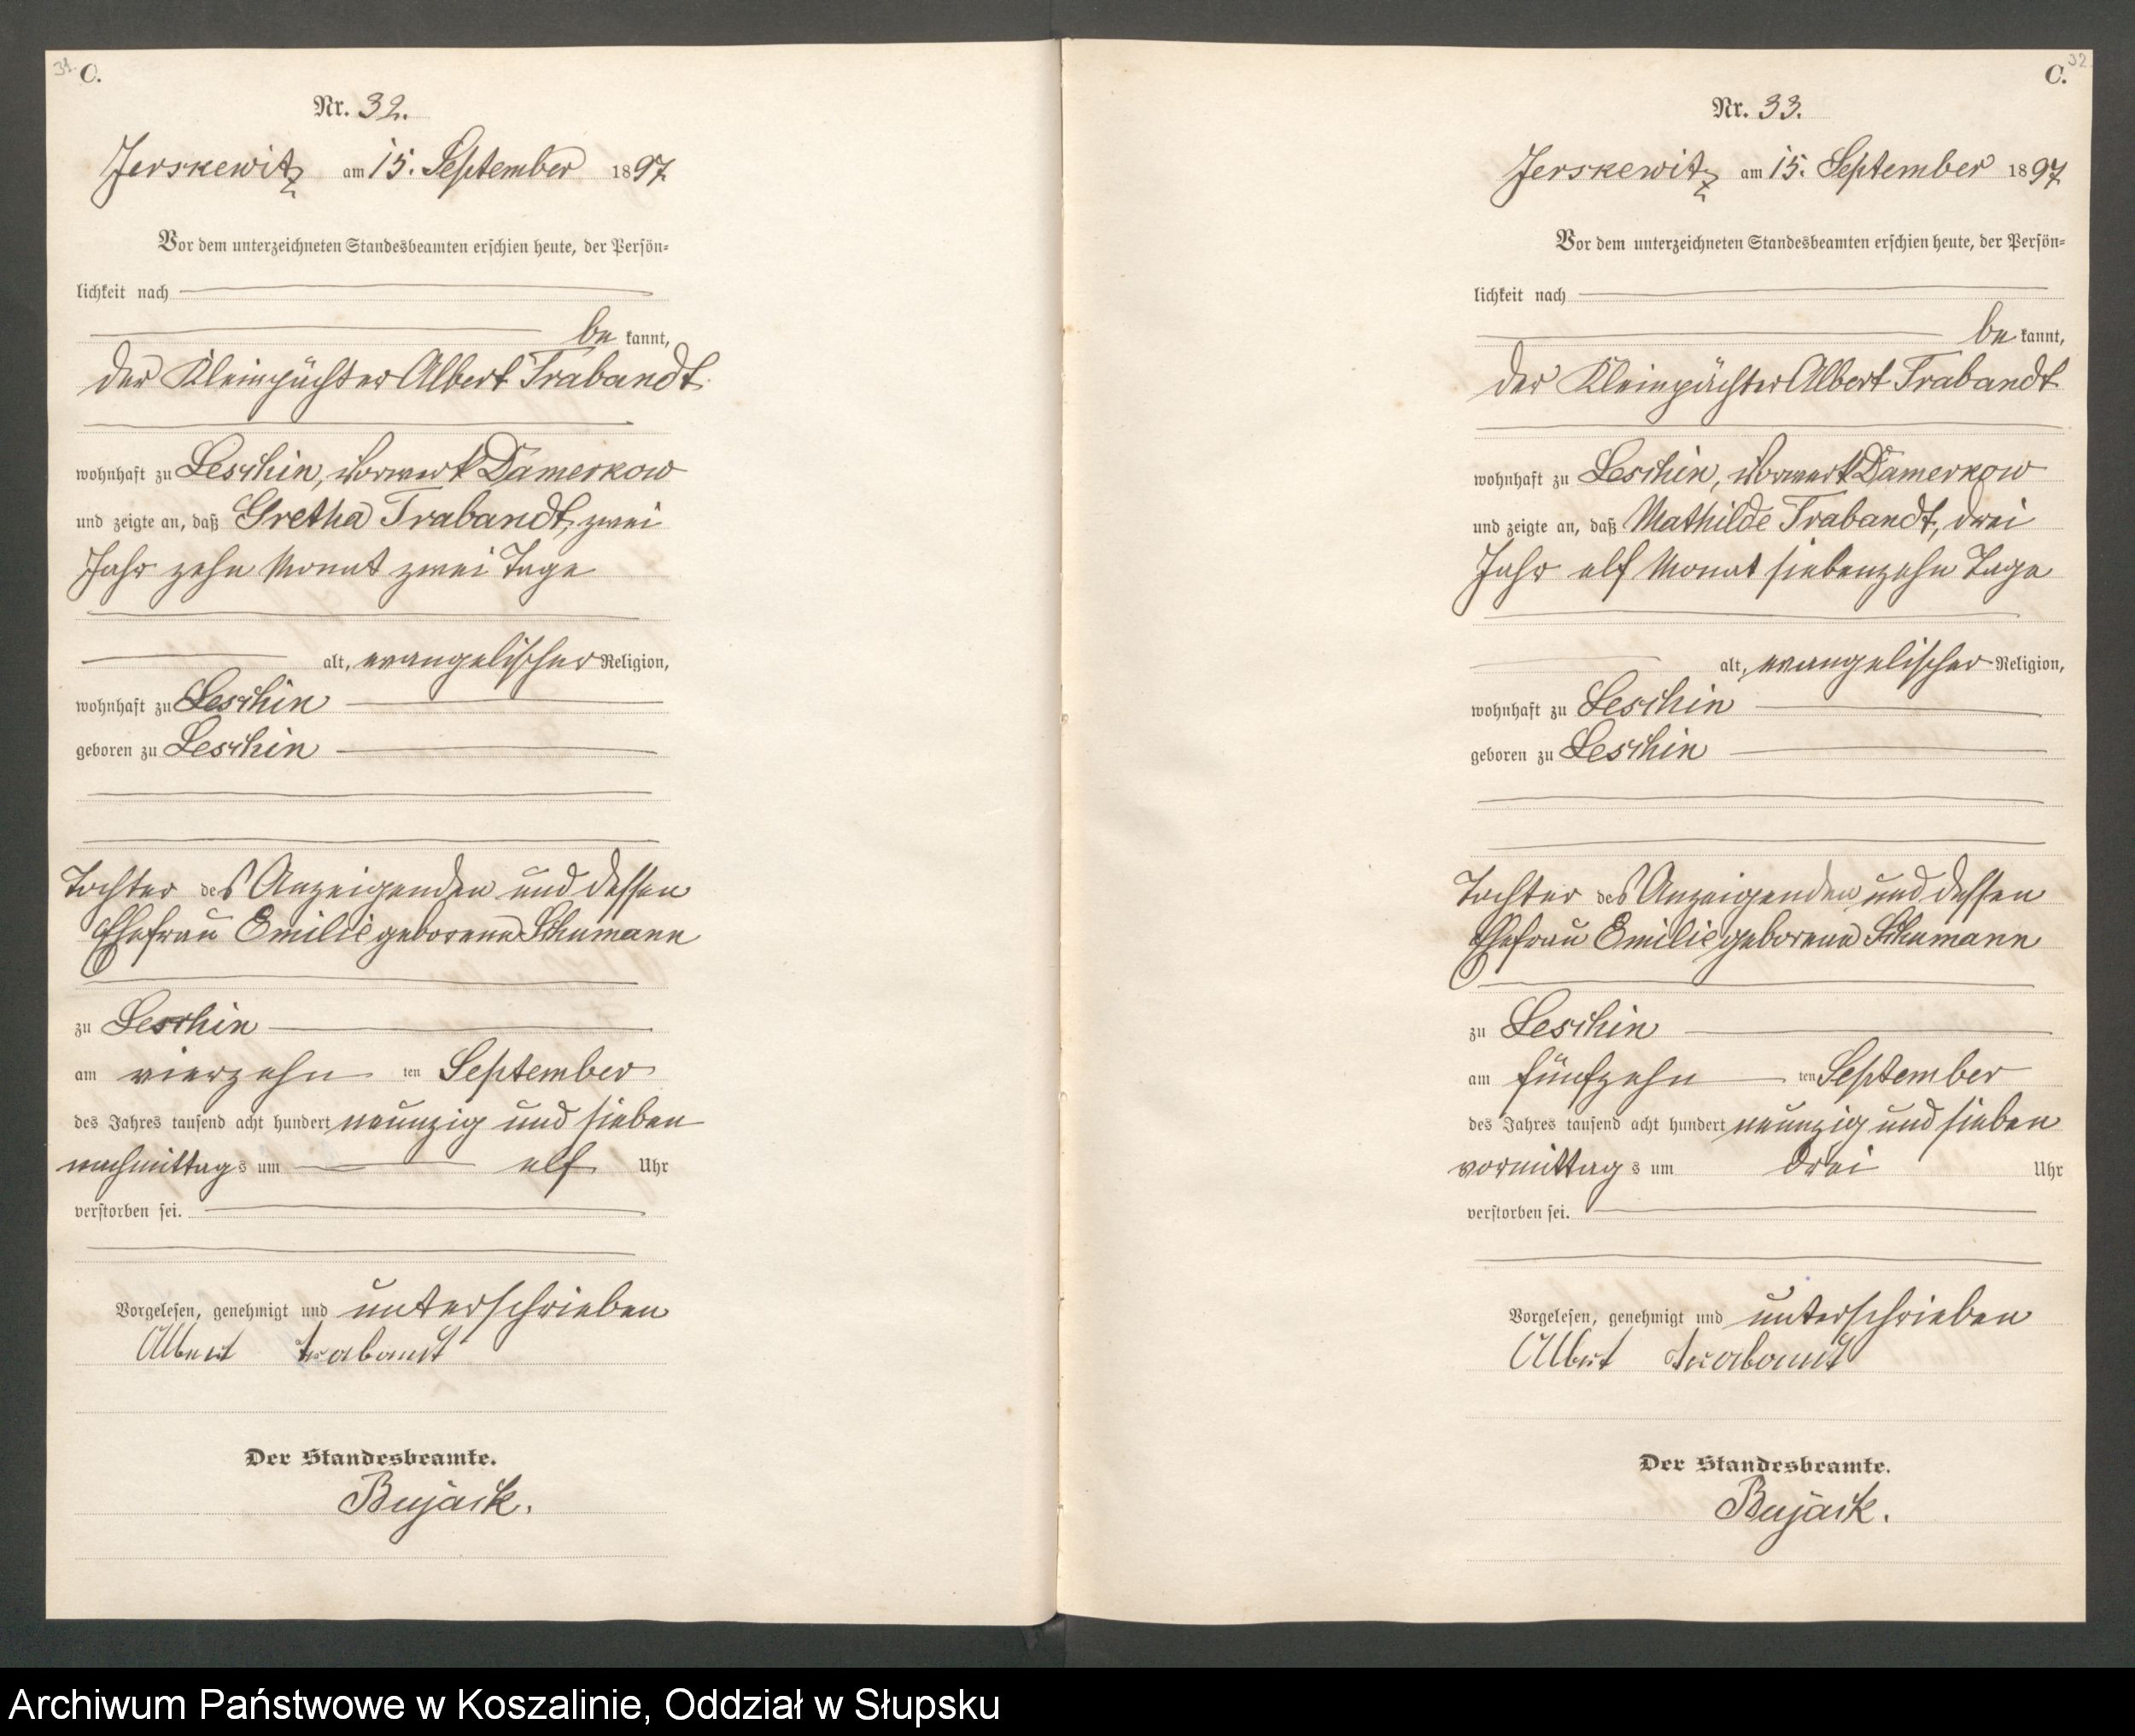 31. C.
Nr. 32.
Jerskewitz am 15. September 1897.
Vor dem unterzeichneten Standesbeamten erschien heute, der Persön-
lichkeit nach
be kannt,
der Kleinpächter Albert Trabandt
wohnhaft zu Leschin, Vorwerk Damerkow
und zeigte an, daß Gretha Trabandt, zwei
Jahr zehn Monat zwei Tage
alt, evangelischer Religion,
wohnhaft zu Leschin
geboren zu Leschin
Tochter des Anzeigenden und dessen
Ehefrau Emilie geborene Schumann
zu Leschin
am vierzehn ten September
des Jahres tausend acht hundert neunzig und sieben
nachmittags um elf Uhr
verstorben sei.
Vorgelesen, genehmigt und unterschrieben
Albert Trabandt
Der Standesbeamte.
Bujack.
C. 32.
Nr. 33.
Jerskewitz am 15. September 1897
Vor dem unterzeichneten Standesbeamten erschien heute, der Persön-
lichkeit nach
be kannt,
der Kleinpächter Albert Trabandt
wohnhaft zu Leschin, Vorwerk Damerkow
und zeigte an, daß Mathilde Trabandt, drei
Jahr elf Monat siebenzehn Tage
alt, evangelischer Religion,
wohnhaft zu Leschin
geboren zu Leschin
Tochter des Anzeigenden und dessen
Ehefrau Emilie geborene Schumann
zu Leschin
am fünfzehn ten September
des Jahres tausend acht hundert neunzig und sieben
vormittags um drei Uhr
verstorben sei.
Vorgelesen, genehmigt und unterschrieben
Albert Trabandt
Der Standesbeamte.
Bujack.
Archiwum Państwowe w Koszalinie, Oddział w Słupsku